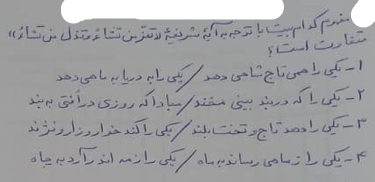 مفهوم کدام بیت با توجه به آیهٔ شریفهٔ «تعز من تشاء و تذل من تشاء»
متفاوت است؟
۱- یکی را همی تاج شاهی دهد / یکی را به دریا به ماهی دهد
۲- یکی را که در بند بینی مخند / مبادا که روزی در افتی به بند
۳- یکی را دهد تاج و تخت بلند / یکی را کند خوار و زار و نژند
۴- یکی را ز ماهی رساند به ماه / یکی را ز مه اندر آرد به چاه